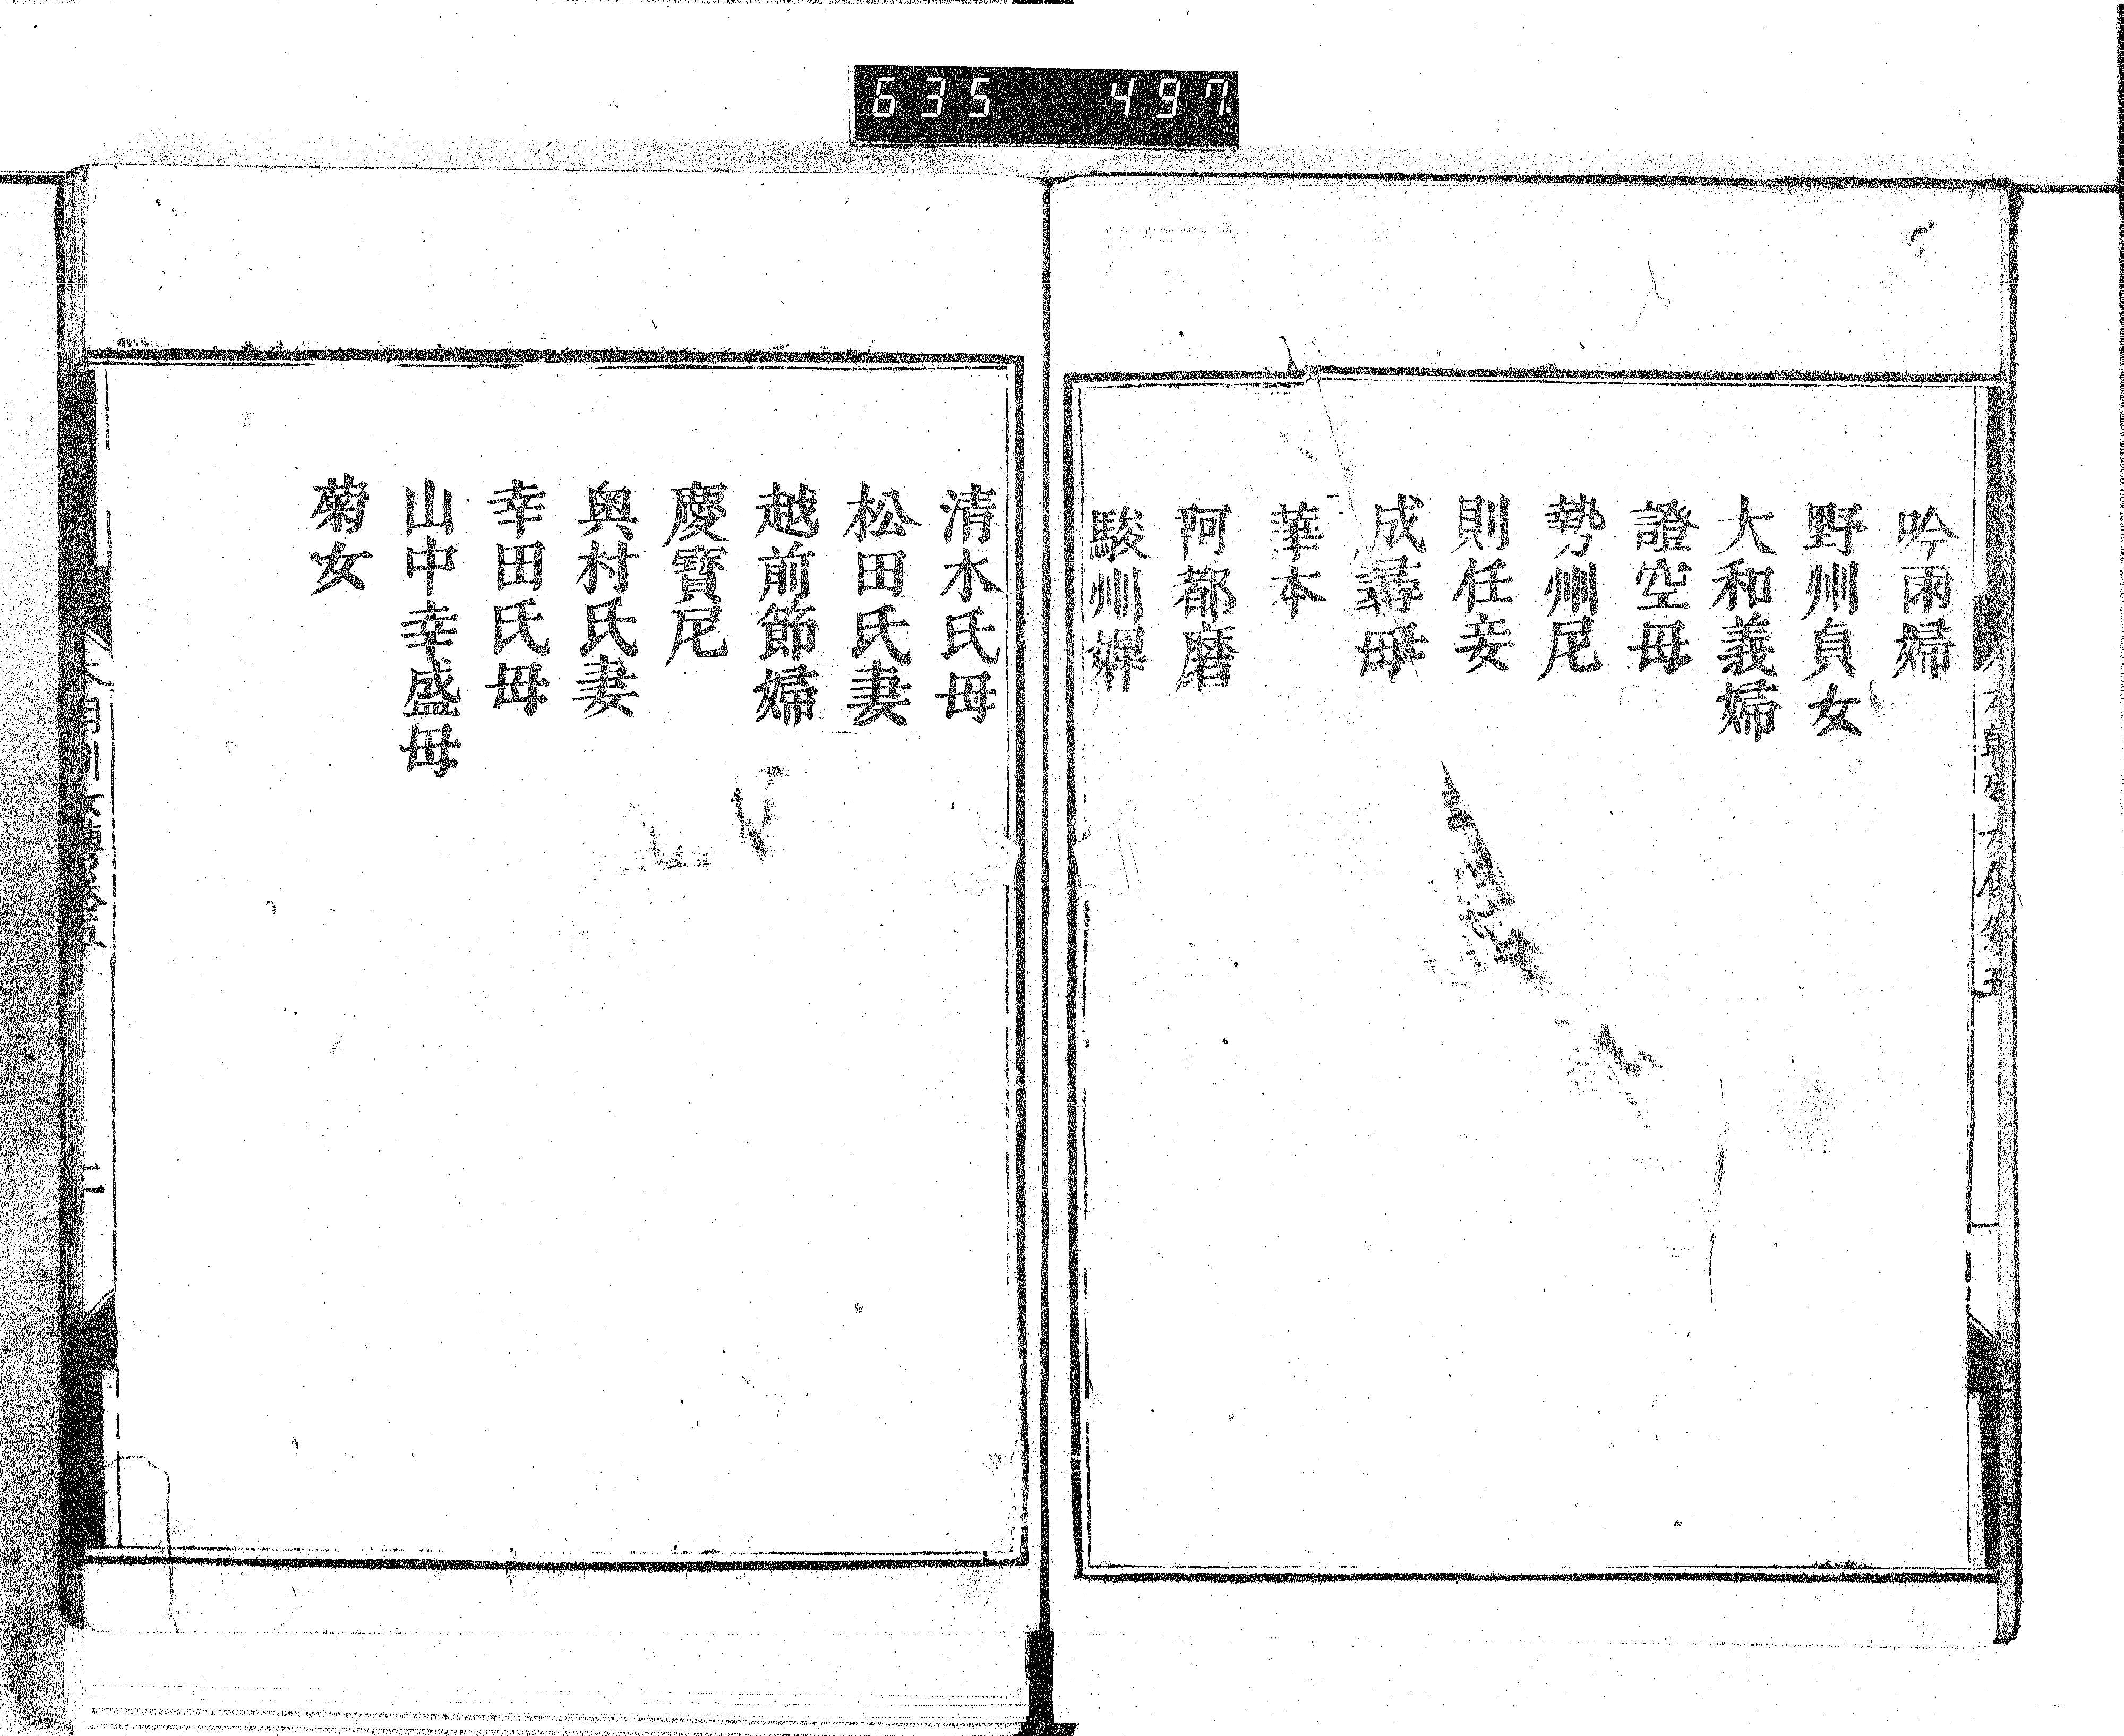 635 497.
吟雨婦
野州貞女
大和義婦
證空母
勢州尼
則任妾
成尋母
華本
阿都磨
駿州婢
清水氏母
松田氏妻
越前節婦
慶寶尼
奥村氏妻
幸田氏母
山中幸盛母
菊女